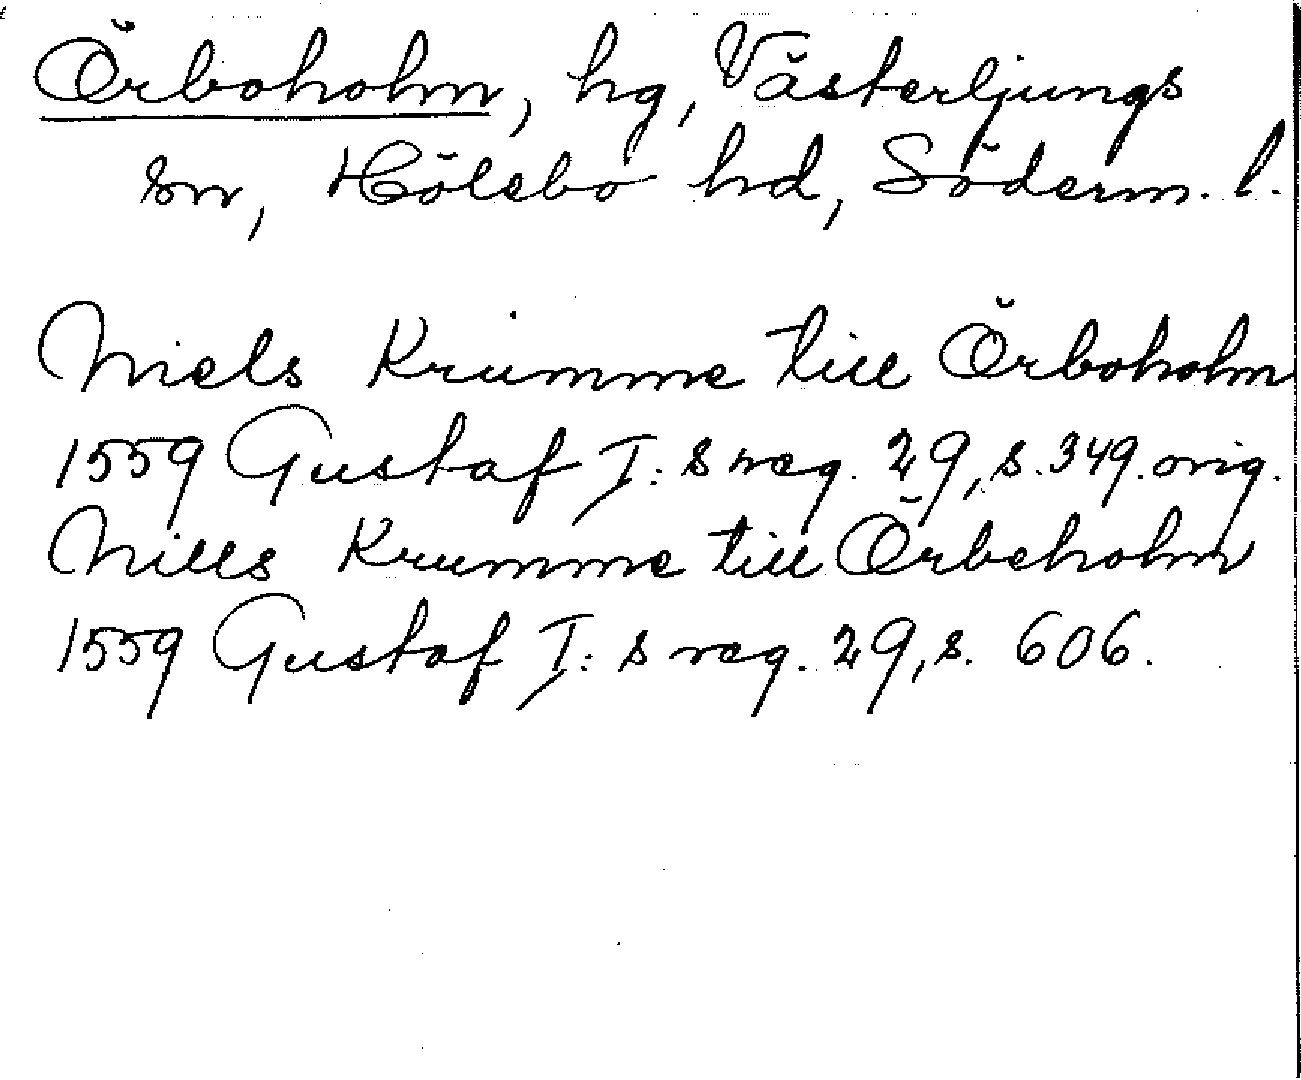 Örboholm, hg, Västerljungs
sn, Hölebo hd, Söderm. l.
Niels Krumme till Örboholm
1559 Gustaf I: s reg. 29, s. 349. orig.
Nills Krumme till Örbeholm
1559 Gustaf I: s reg. 29, s. 606.